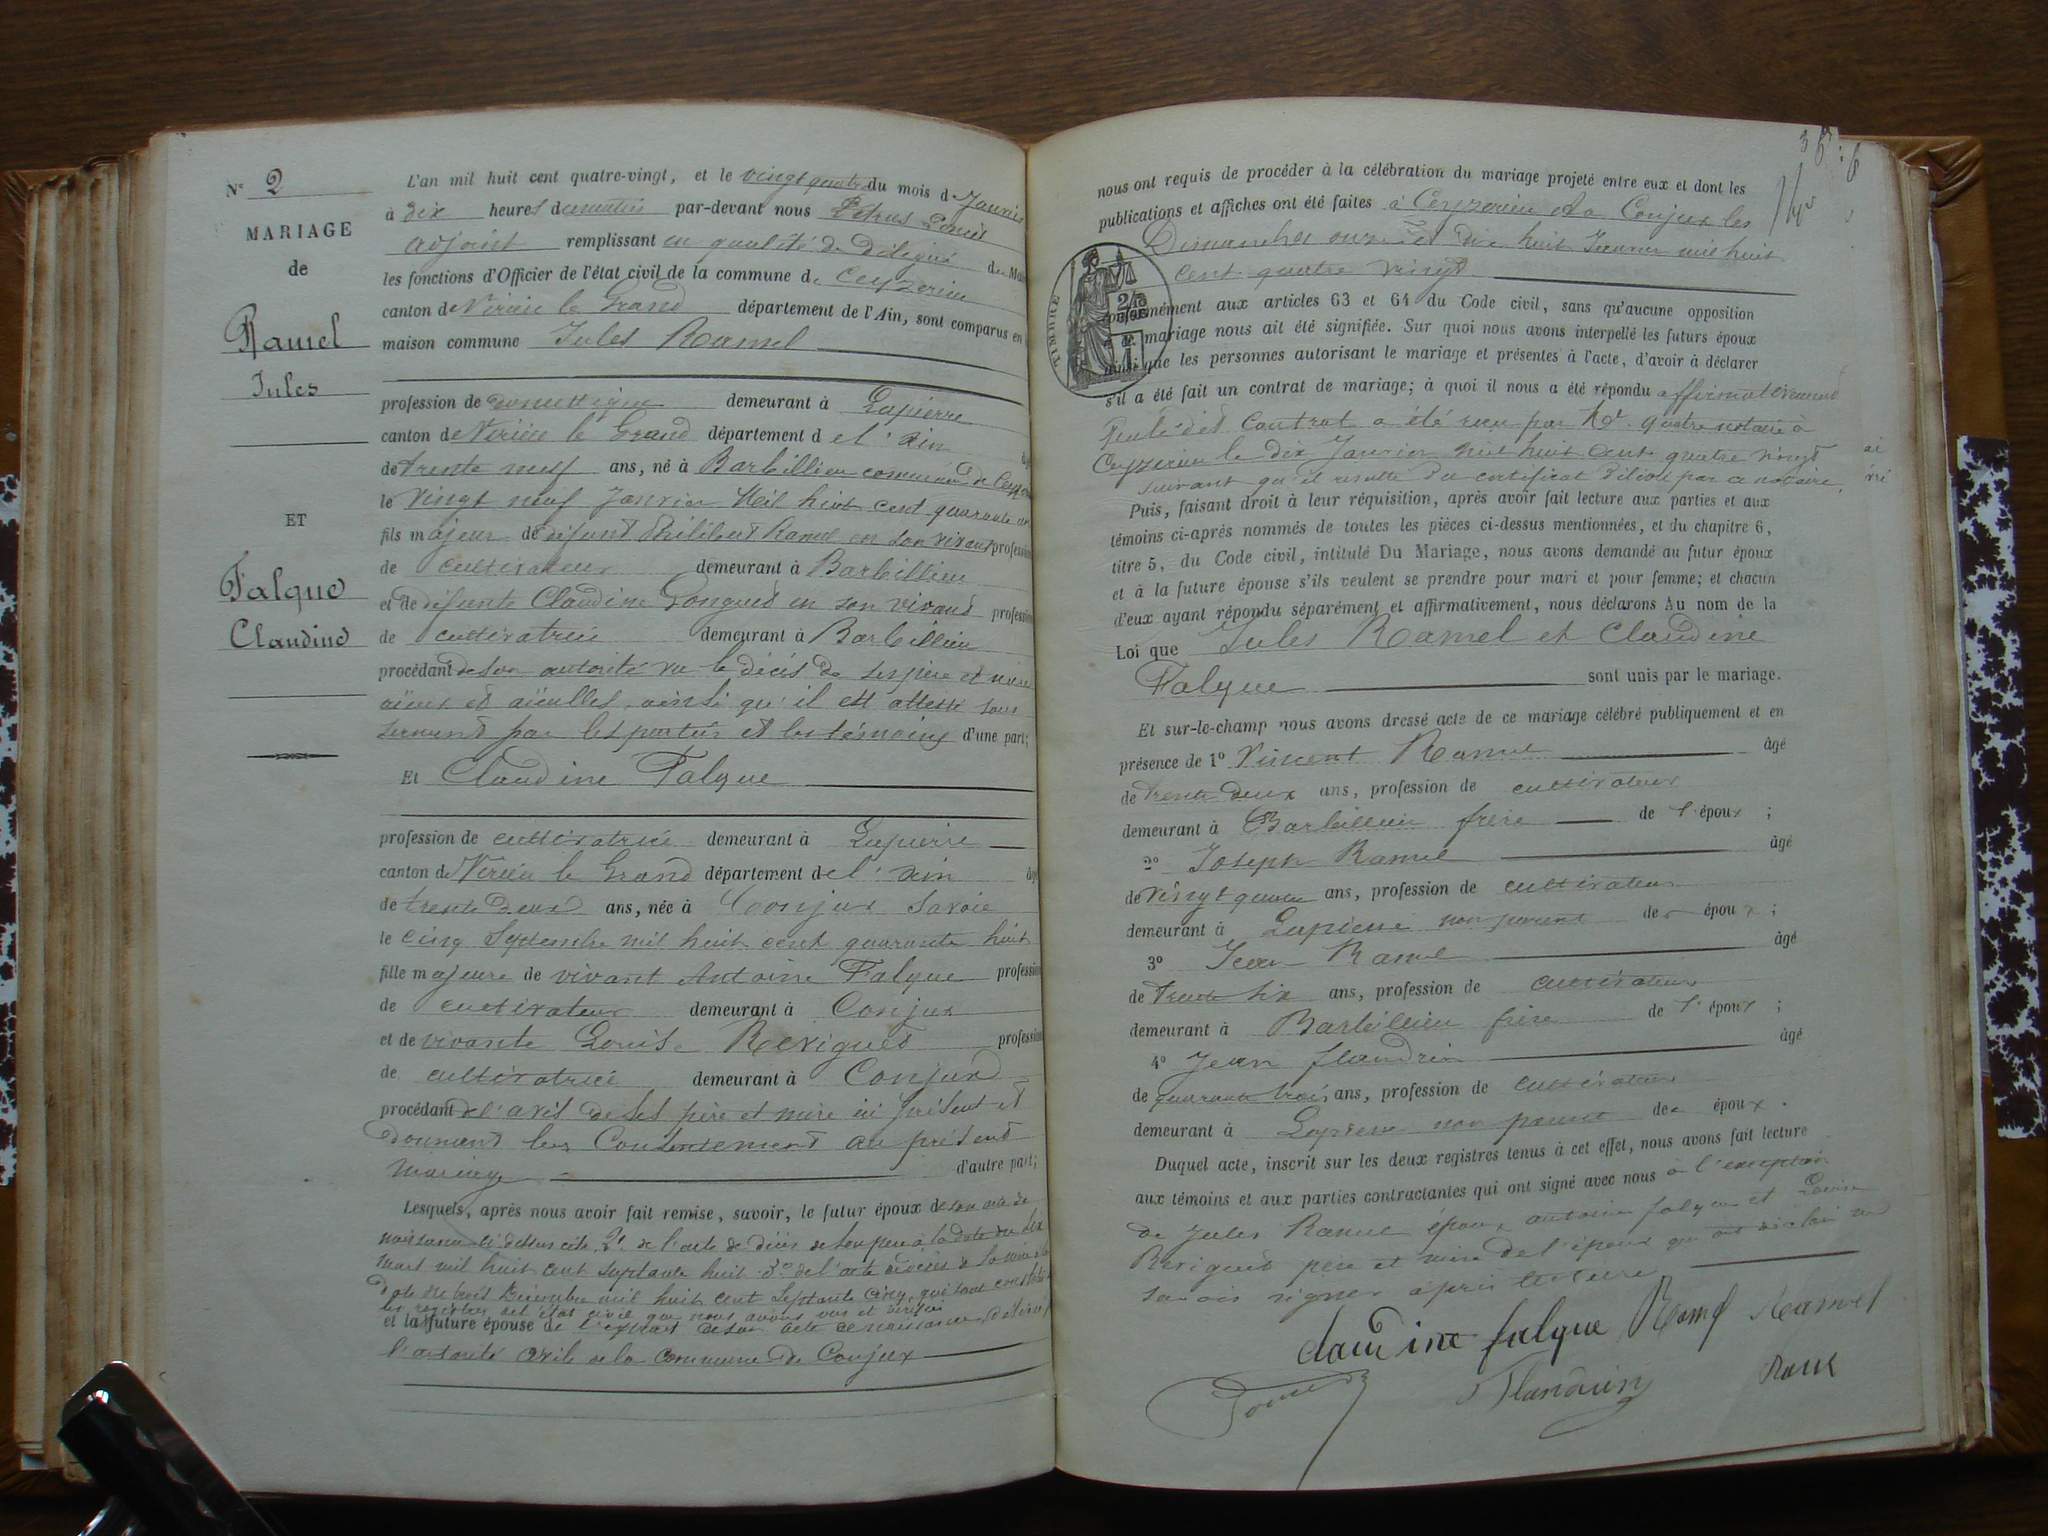 N° 2
MARIAGE
de
Ramel
Jules
ET
Falque
Claudine
L'an mil huit cent quatre-vingt, et le vingt quatre du mois de Janvier
à dix heures du matin par-devant nous Petrus
adjoint remplissant en qualité de délégué de Maire
les fonctions d'Officier de l'état civil de la commune de Ceyzerieu
canton de Virieu le Grand département de l'Ain, sont comparus en
maison commune Jules Ramel
profession de domestique demeurant à Lapierre
canton de Virieu le Grand département de l'ain
de trente neuf ans, né à Barbillieu commune de Ceyz
le vingt neuf Janvier Mil huit cent quarante un
fils majeur de défunt Philibert Ramel en son vivant profession
de cultivateur demeurant à Barbillieu
et de défunte Claudine en son vivant profession
de cultivatrice demeurant à Barbillieu
procédant de son autorité vu le décès de ses père et mère
aïeux et aïeulles, ainsi qu'il est attesté sous
serment par les parties et les témoins d'une part;
Et Claudine Falque
profession de cultivatrice demeurant à Lapierre
canton de Virieu le Grand département de l'ain
de trente deux ans, née à Conjux Savoie
le cinq Septembre mil huit cent quarante huit
fille majeure de vivant Antoine Falque profession
de cultivateur demeurant à Conjux
et de vivante Louise profession
de cultivatrice demeurant à Conjux
procédant de l'avis de ses père et mère ici présent et
donnant leur Consentement au présent
mariage d'autre part;
Lesquels, après nous avoir fait remise, savoir, le futur époux de son acte de
naissance ci dessus cité 2° de l'acte de décès de son père à la date du dix
mars mil huit cent septante huit 3° de l'acte de décès de sa mère à la
date du trois Décembre mil huit cent septante cinq, qui sont constatés
les registres de l'état civil que nous avons vus et vérifiés
et la future épouse de l'extrait de son acte de naissance délivré
l'autorité civile de la commune de Conjux
nous ont requis de procéder à la célébration du mariage projeté entre eux et dont les
publications et affiches ont été faites à Ceyzerieu et à Conjux les
Dimanches onze et dix huit Janvier mil huit
cent quatre vingt
TIMBRE
conformément aux articles 63 et 64 du Code civil, sans qu'aucune opposition
mariage nous ait été signifiée. Sur quoi nous avons interpellé les futurs époux
ainsi que les personnes autorisant le mariage et présentes à l'acte, d'avoir à déclarer
s'il a été fait un contrat de mariage; à quoi il nous a été répondu affirmativement
contrat a été reçu par notaire à
Ceyzerieu le dix Janvier mil huit cent quatre vingt
suivant qu'il résulte du certificat délivré par ce notaire,
Puis, faisant droit à leur réquisition, après avoir fait lecture aux parties et aux
témoins ci-après nommés de toutes les pièces ci-dessus mentionnées, et du chapitre 6,
titre 5, du Code civil, intitulé Du Mariage, nous avons demandé au futur époux
et à la future épouse s'ils veulent se prendre pour mari et pour femme; et chacun
d'eux ayant répondu séparément et affirmativement, nous déclarons Au nom de la
Loi que Jules Ramel et Claudine
Falque sont unis par le mariage.
Et sur-le-champ nous avons dressé acte de ce mariage célébré publiquement et en
présence de 1° Vincent Ramel âgé
de trente deux ans, profession de cultivateur
demeurant à Barbillieu frère de l'époux ;
2° Joseph Ramel âgé
de vingt quatre ans, profession de cultivateur
demeurant à Lapierre non parent des époux ;
3° Jean Ramel âgé
de trente six ans, profession de cultivateur
demeurant à Barbillieu frère de l'époux ;
4° Jean flandrin âgé
de quarante trois ans, profession de cultivateur
demeurant à Lapierre non parent des époux.
Duquel acte, inscrit sur les deux registres tenus à cet effet, nous avons fait lecture
aux témoins et aux parties contractantes qui ont signé avec nous à l'exception
de Jules Ramel époux antoine falque et Louise
père et mère de l'épouse qui ont déclaré ne
savoir signer après lecture
claudine falque Ramel Ramel
Flandrin